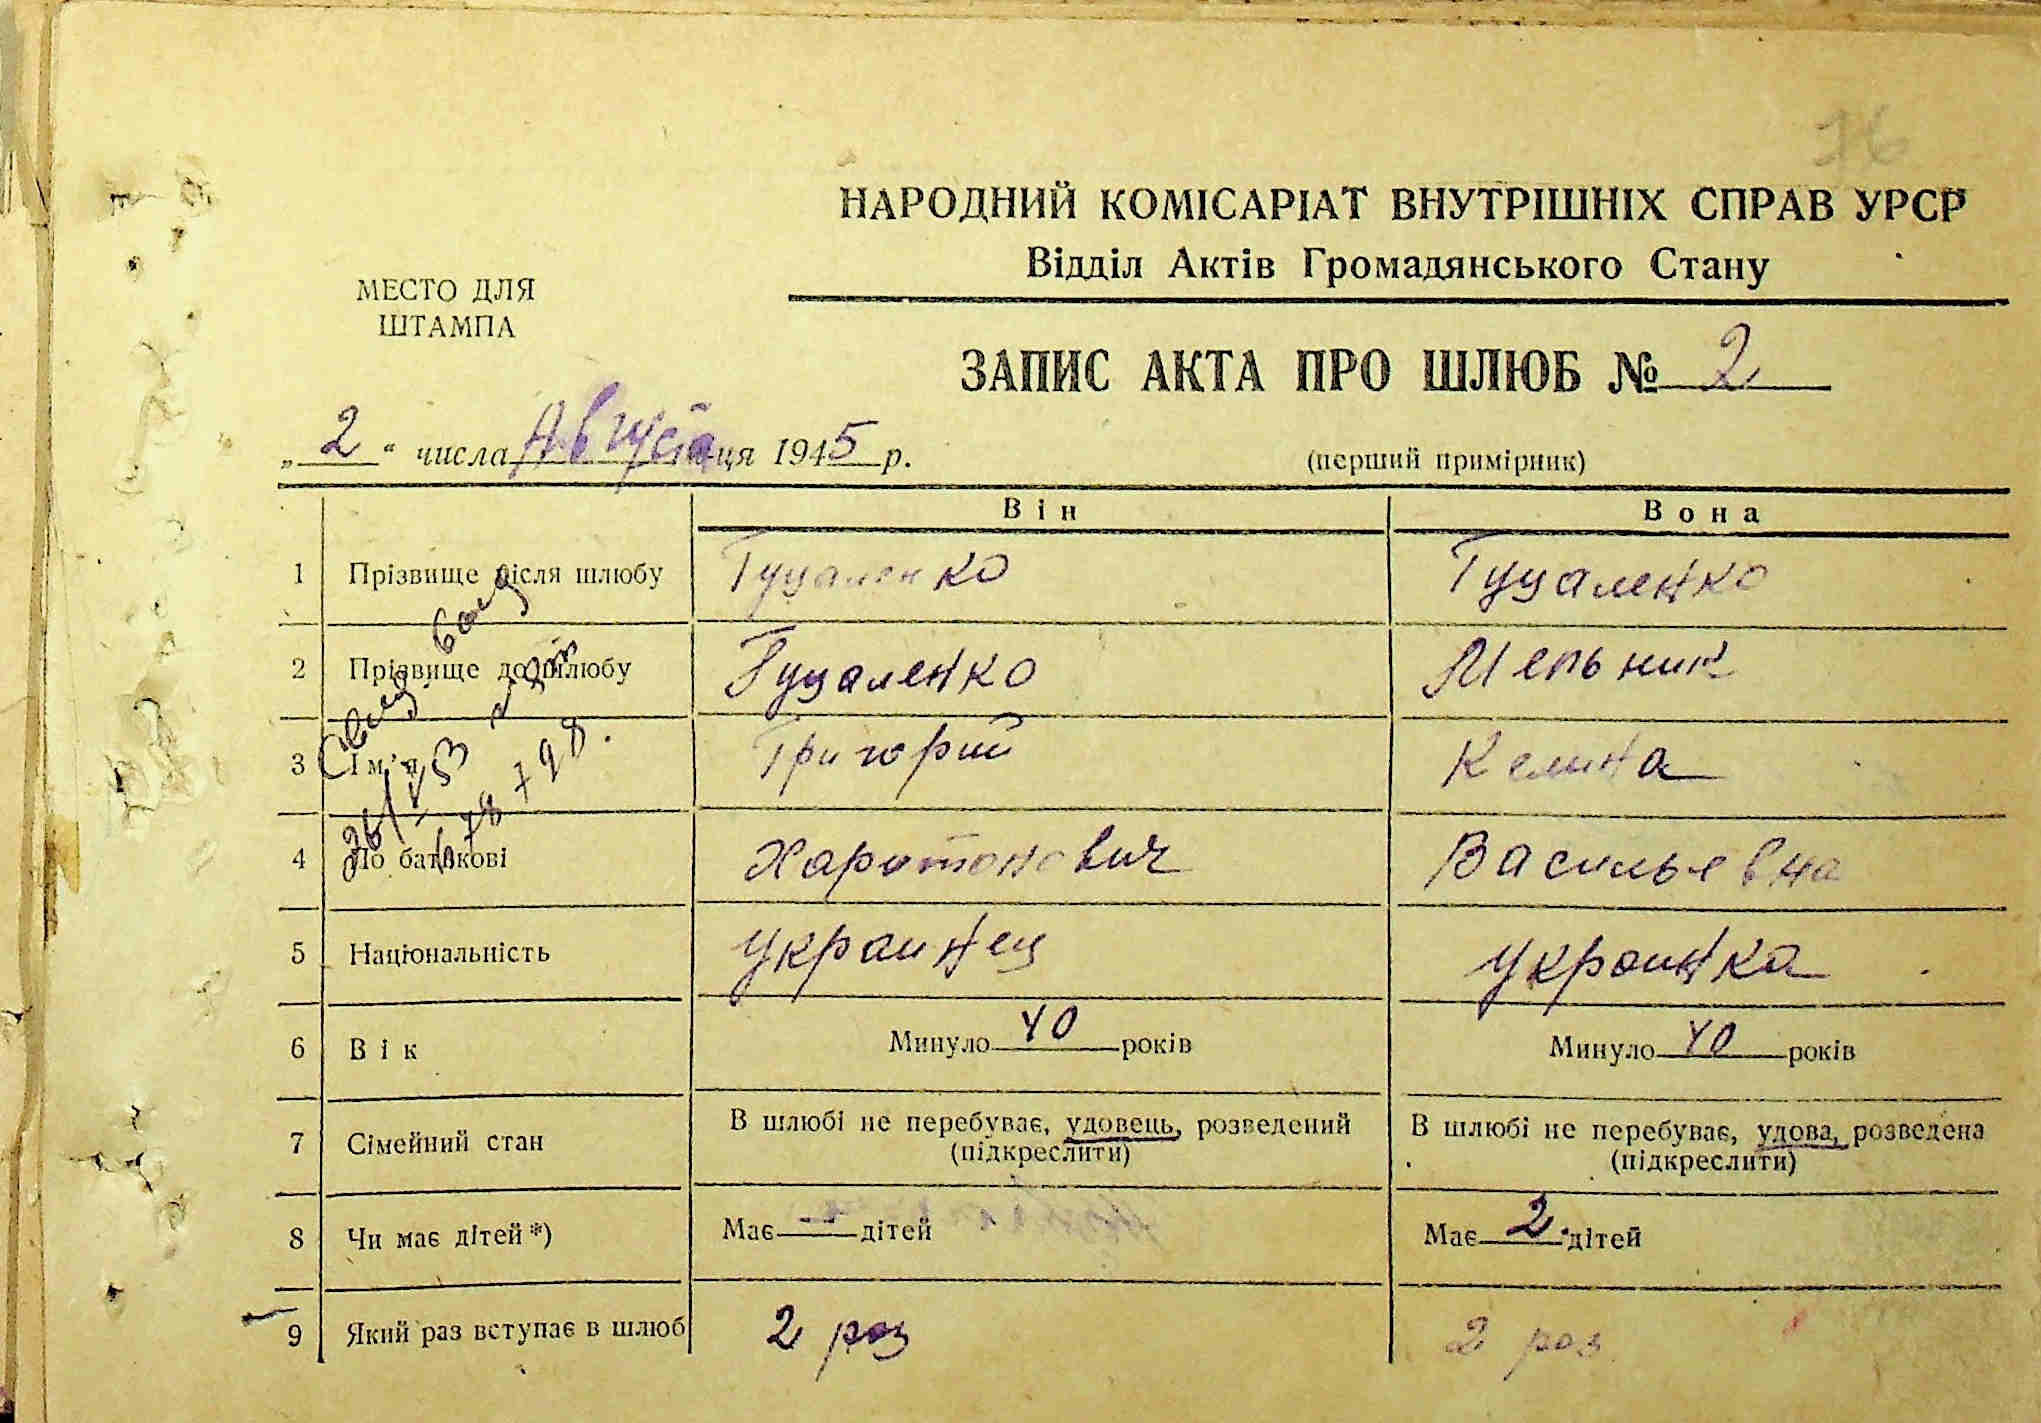 76
НАРОДНИЙ КОМІСАРІАТ ВНУТРІШНІХ СПРАВ УРСР
Відділ Актів Громадянського Стану
МЕСТО ДЛЯ
ШТАМПА
ЗАПИС АКТА ПРО ШЛЮБ № 2
„ 2 “ числа Августа ця 1945 р.
(перший примірник)
Він Вона
1 Прізвище після шлюбу Гуцаленко Гуцаленко
2 Прізвище до шлюбу Гуцаленко Мельник
3 Ім'я Григорий Келина
4 По батькові Харитонович Васильевна
5 Національність украинец украинка
6 Вік Минуло 40 років Минуло 40 років
7 Сімейний стан В шлюбі не перебуває, удовець, розведений В шлюбі не перебуває, удова, розведена
(підкреслити) (підкреслити)
8 Чи має дітей *) Має — дітей Має 2. дітей
9 Який раз вступає в шлюб 2 раз 2 раз